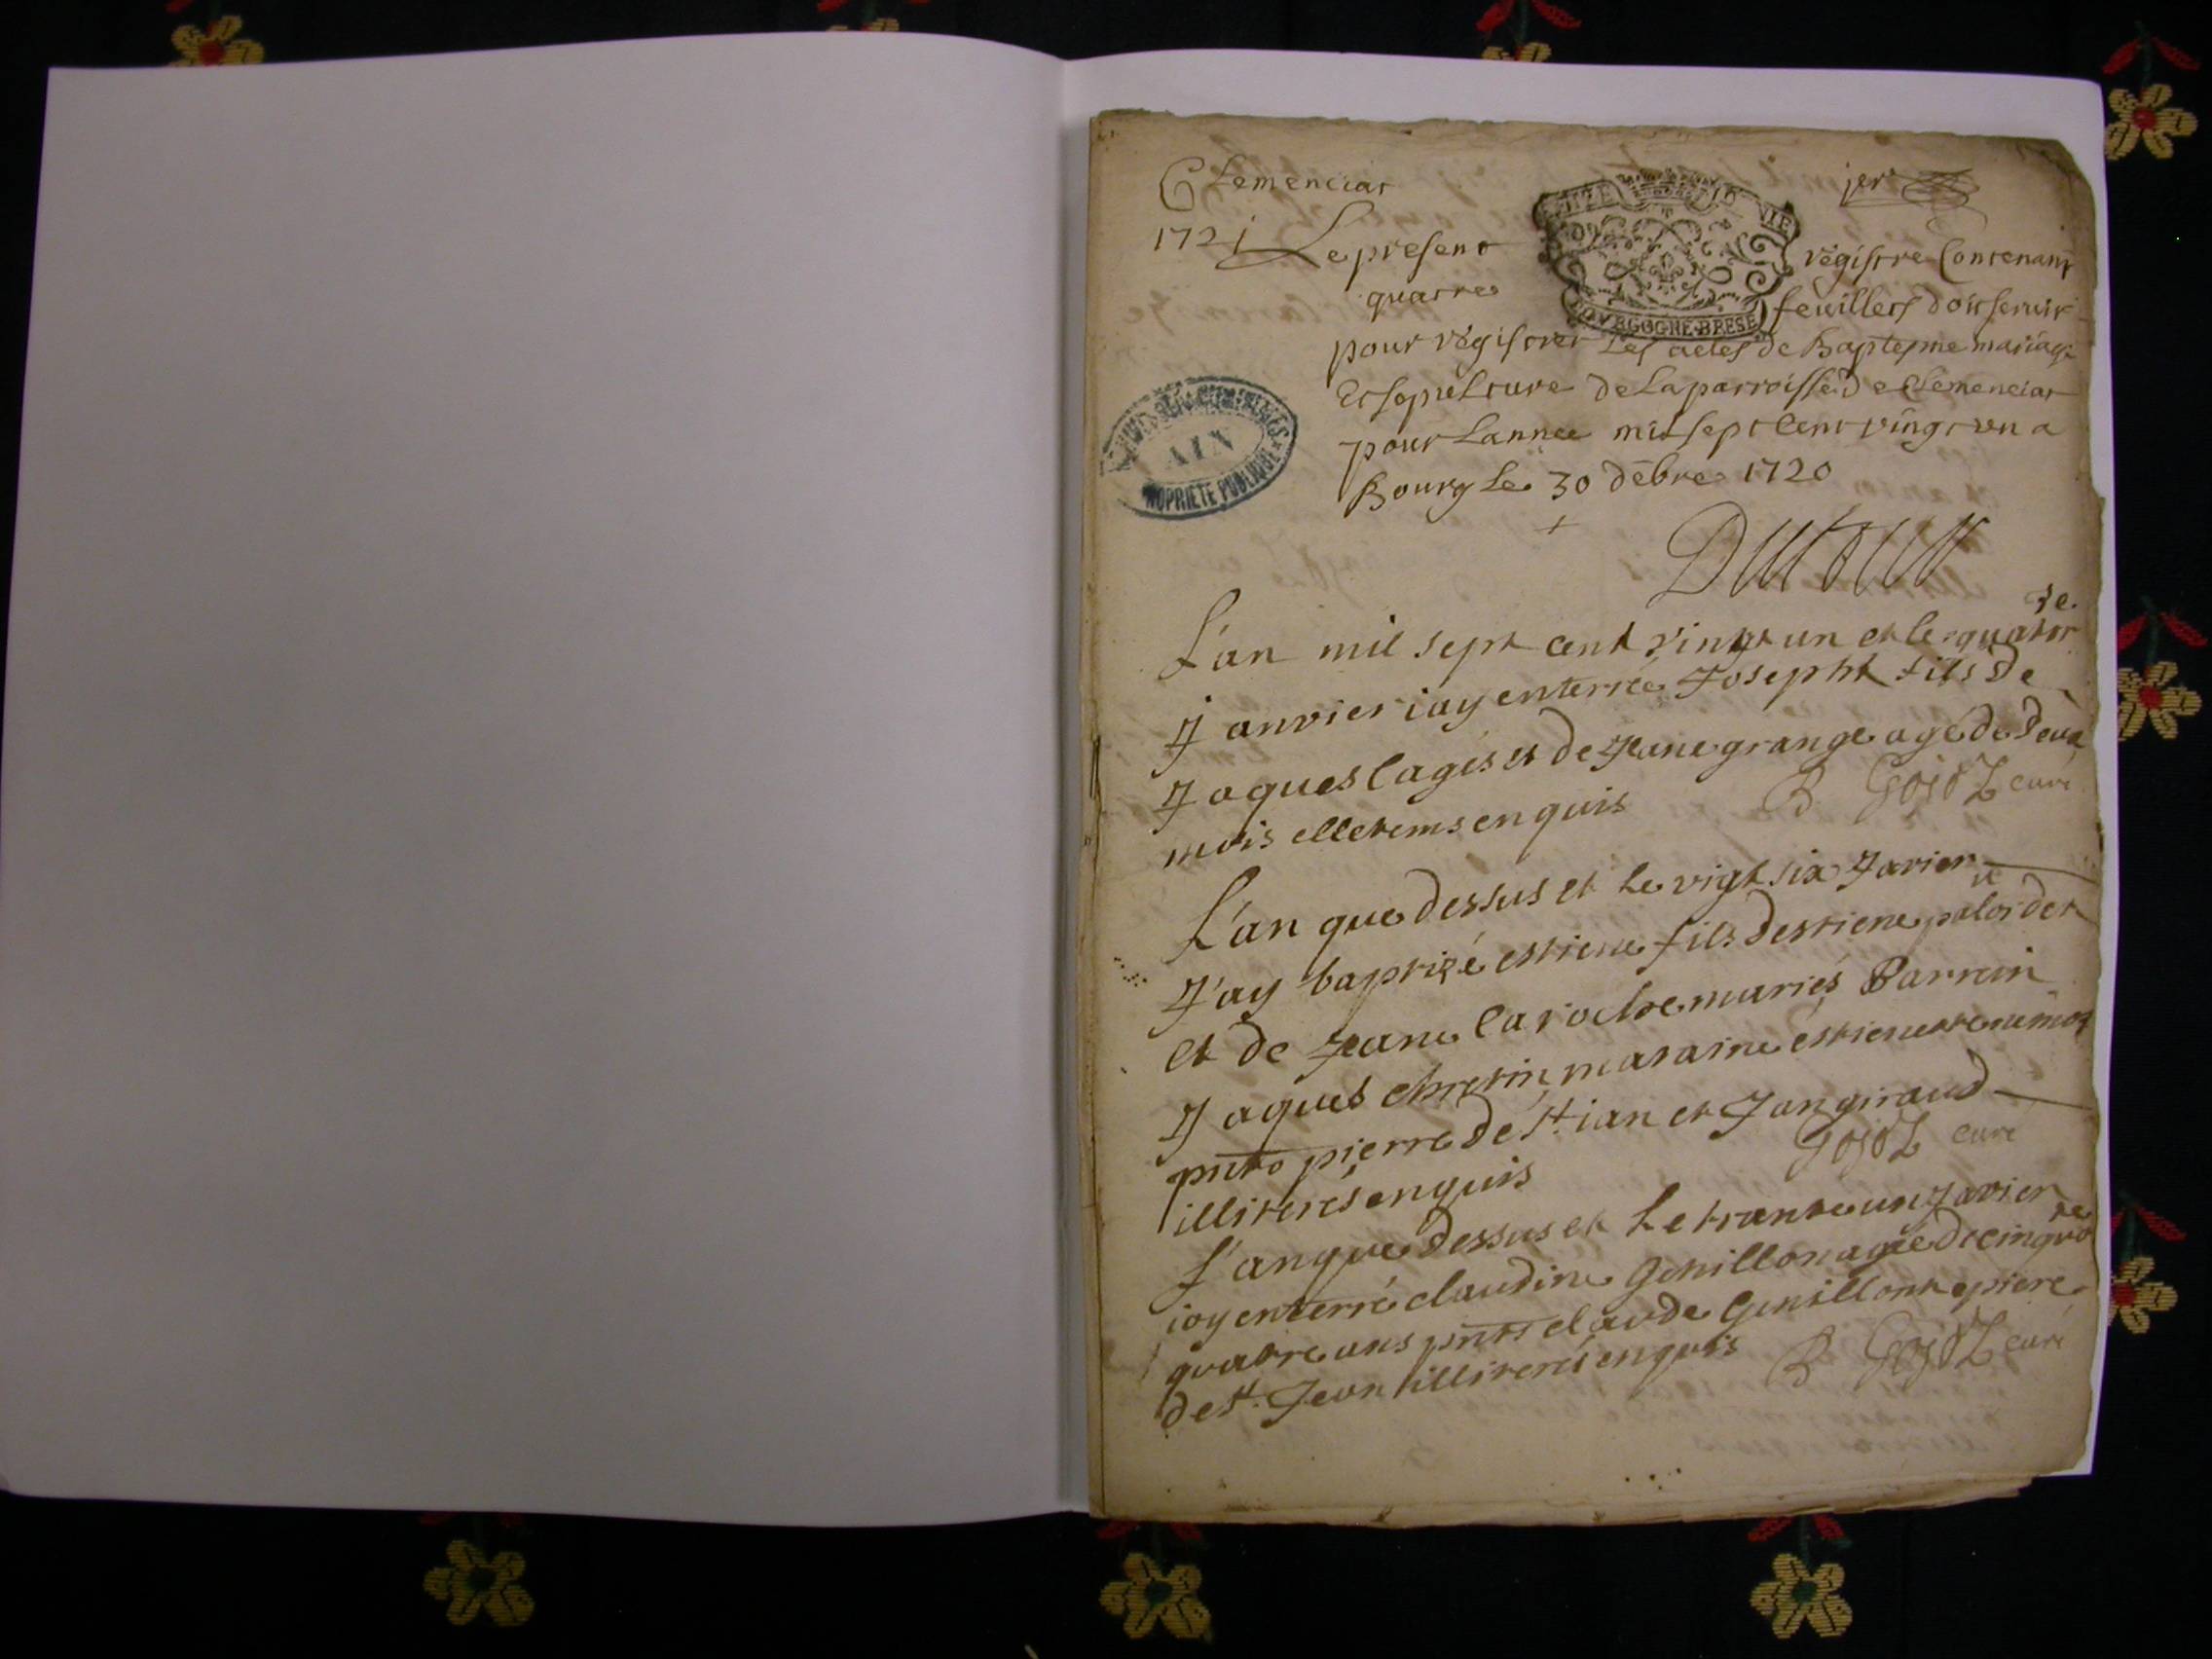 Clemenciat
jer
1721 Le present registre Contenant
quatre feuillets doit servir
pour registrer Les actes de Baptesme mariage
Et sepulture de La parroisse de Clemenciat
pour Lannée mil sept Cent vingt un a
Bourg Le 30 debre 1720
BOURGOGNE·BRESE
ARCHIVES DÉPARTEMENTALES
AIN
PROPRIÉTÉ PUBLIQUE
L'an mil sept cent vingt un et le quator ze
Janvier iay enterré Josepht fils de
Jaques lagis et de Jeane grange agé de deux
mois elletems enquis B Gojoz curé
L'an que dessus et le vigt six Javier
J'ay baptizé estiene fils destiene
et de Jeane laroche mariés Parrein
Jaques chretin, maraine estienette
pnts pierre de st. ian et Jan giraud
illiterés enquis Gojoz curé
L'an que dessus et Le trante un Javier
iay enterré claudine genillon agée de cinqua te
quatre ans pnts claude genillont e piere
de st. Jean illiterés enquis B Gojoz curé